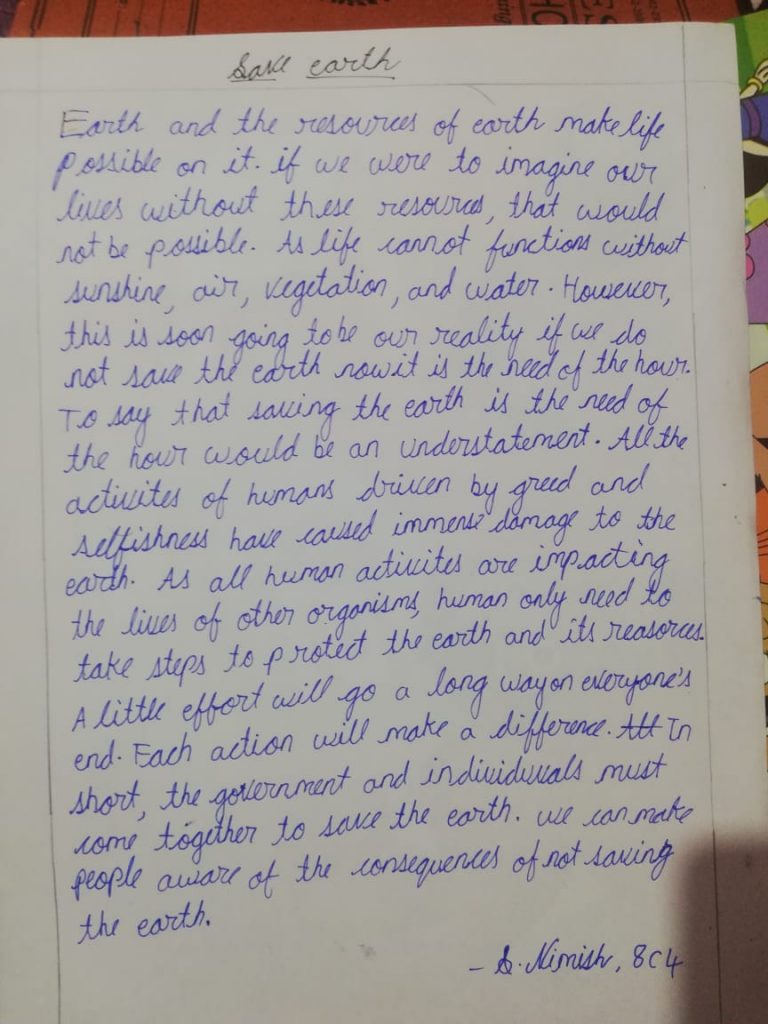 Save earth
Earth and the resources of earth make life
possible on it. if we were to imagine our
lives without these resources, that would
not be possible. As life cannot functions without
sunshine, air, vegetation, and water. However,
this is soon going to be our reality if we do
not save the earth now it is the need of the hour.
To say that saving the earth is the need of
the hour would be an understatement. All the
activites of humans driven by greed and
selfishness have caused immense damage to the
earth. As all human activites are impacting
the lives of other organisms, human only need to
take steps to protect the earth and its reasorces.
A little effort will go a long way on everyone's
end. Each action will make a difference. All In
short, the government and individuals must
come together to save the earth. we can make
people aware of the consequences of not saving
the earth.
- S. Nimish, 8C4